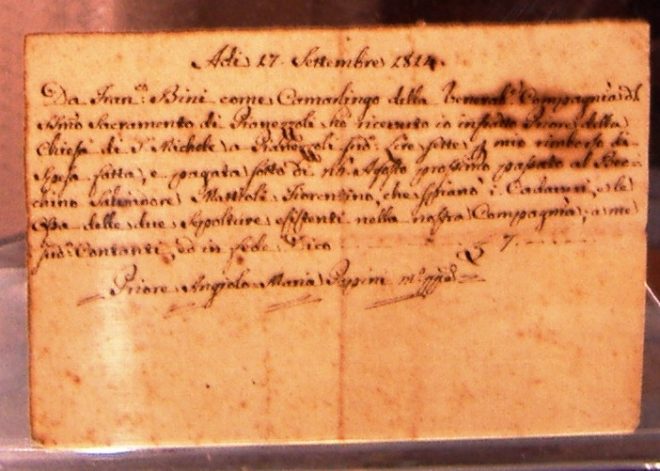 Adì 17. Settembre 1814
Da Fran.co Bini come Camarlingo della Venerab.e Compagnia del
SSmo Sacramento di Pianezzoli ho ricevuto io infrascritto Priore della
Chiesa di S. Michele a Pianezzoli Lire sette p mio rimborso di
spesa fatta, e pagata sotto dì Agosto prossimo passato al Bec=
chino Salvadore Mattioli Fiorentino, che spianò i Cadaveri, e le
Ossa delle due sepolture esistenti nella nostra Compagnia; a me
Contanti, ed in fede dico £ 7.
Priore Angiolo Maria Pippini m.o pp.a